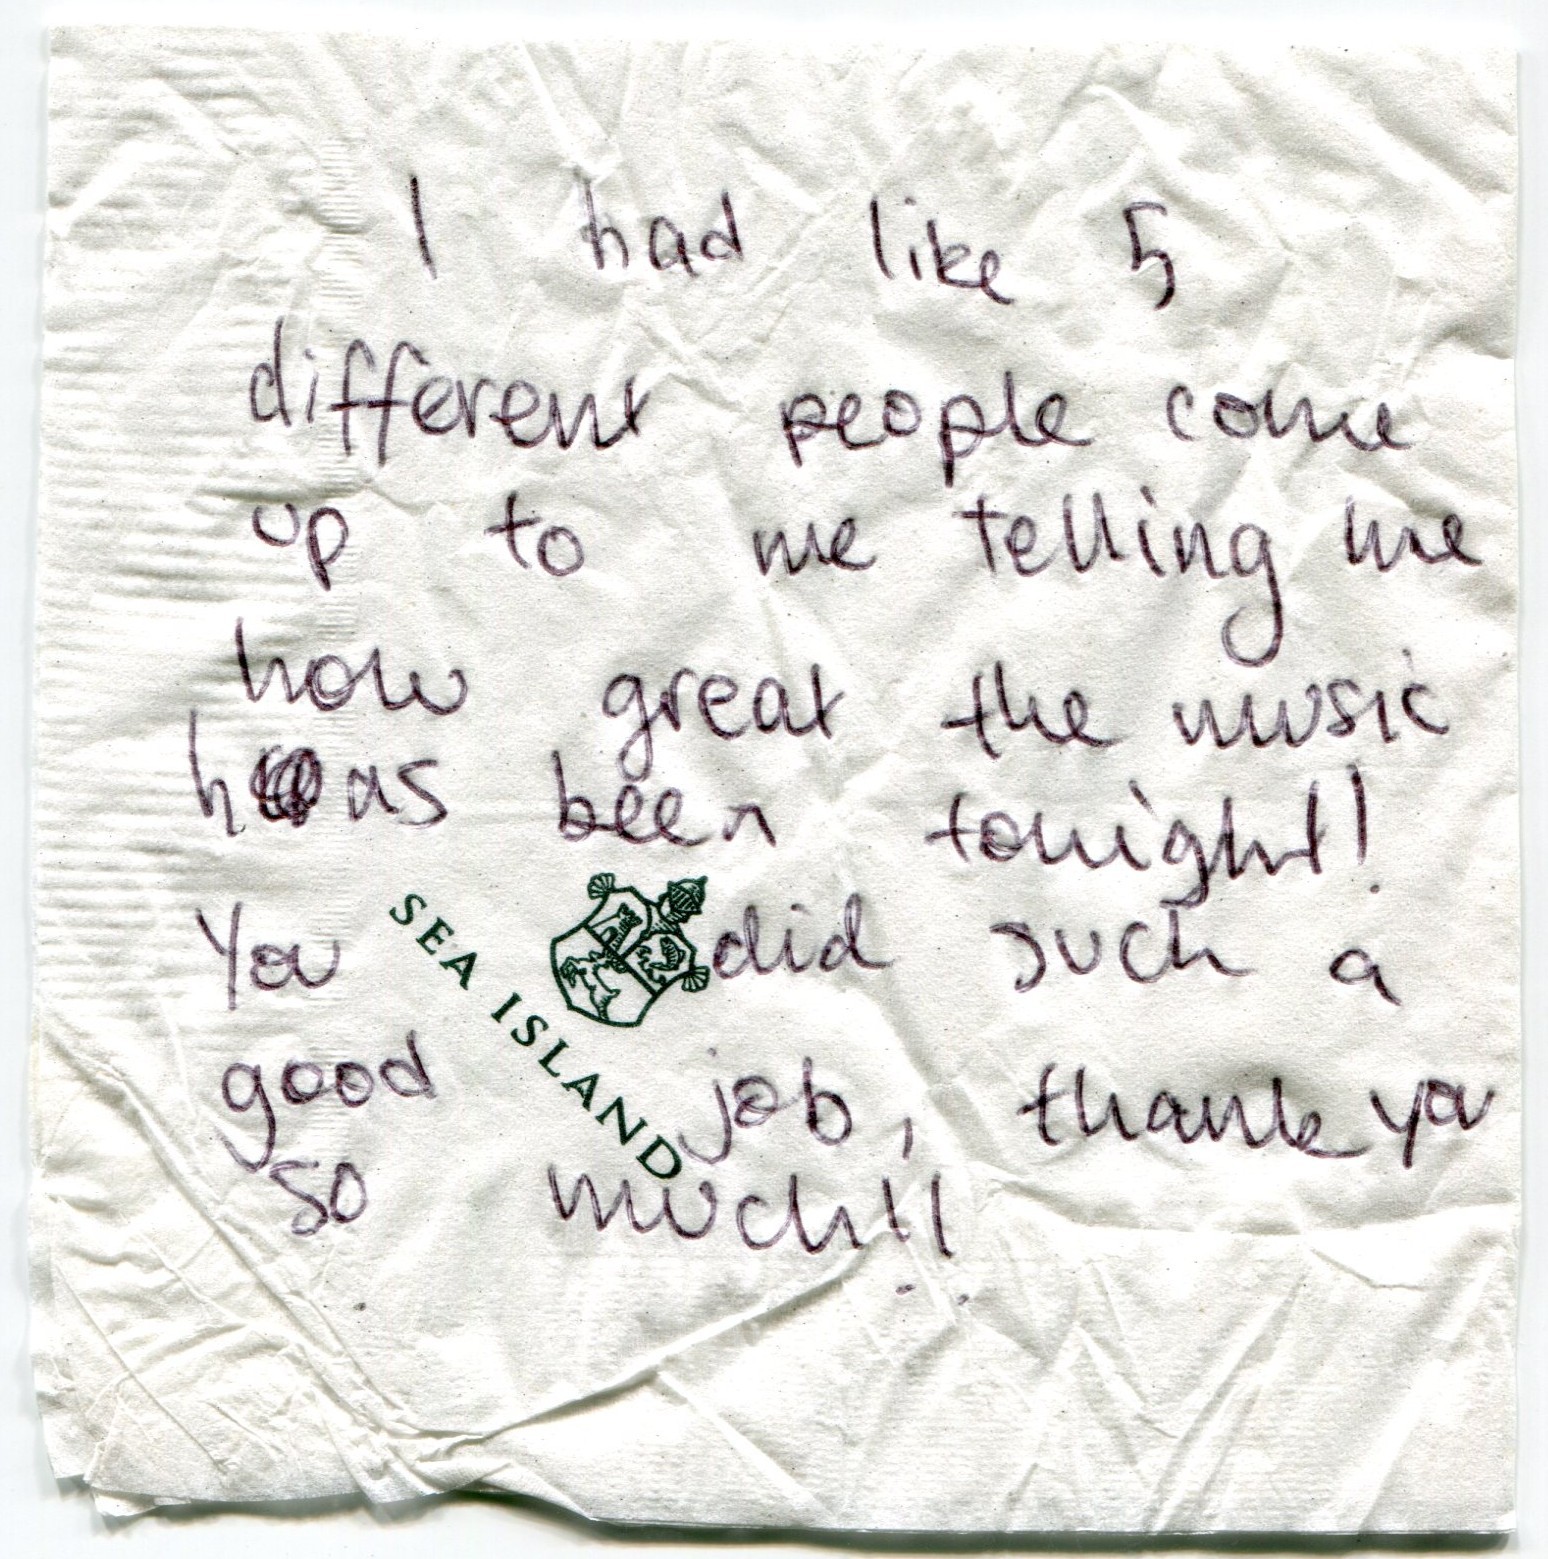 I had like 5
different people come
up to me telling me
how great the music
has been tonight!
You did such a
good job, thank you
so much!!
SEA ISLAND